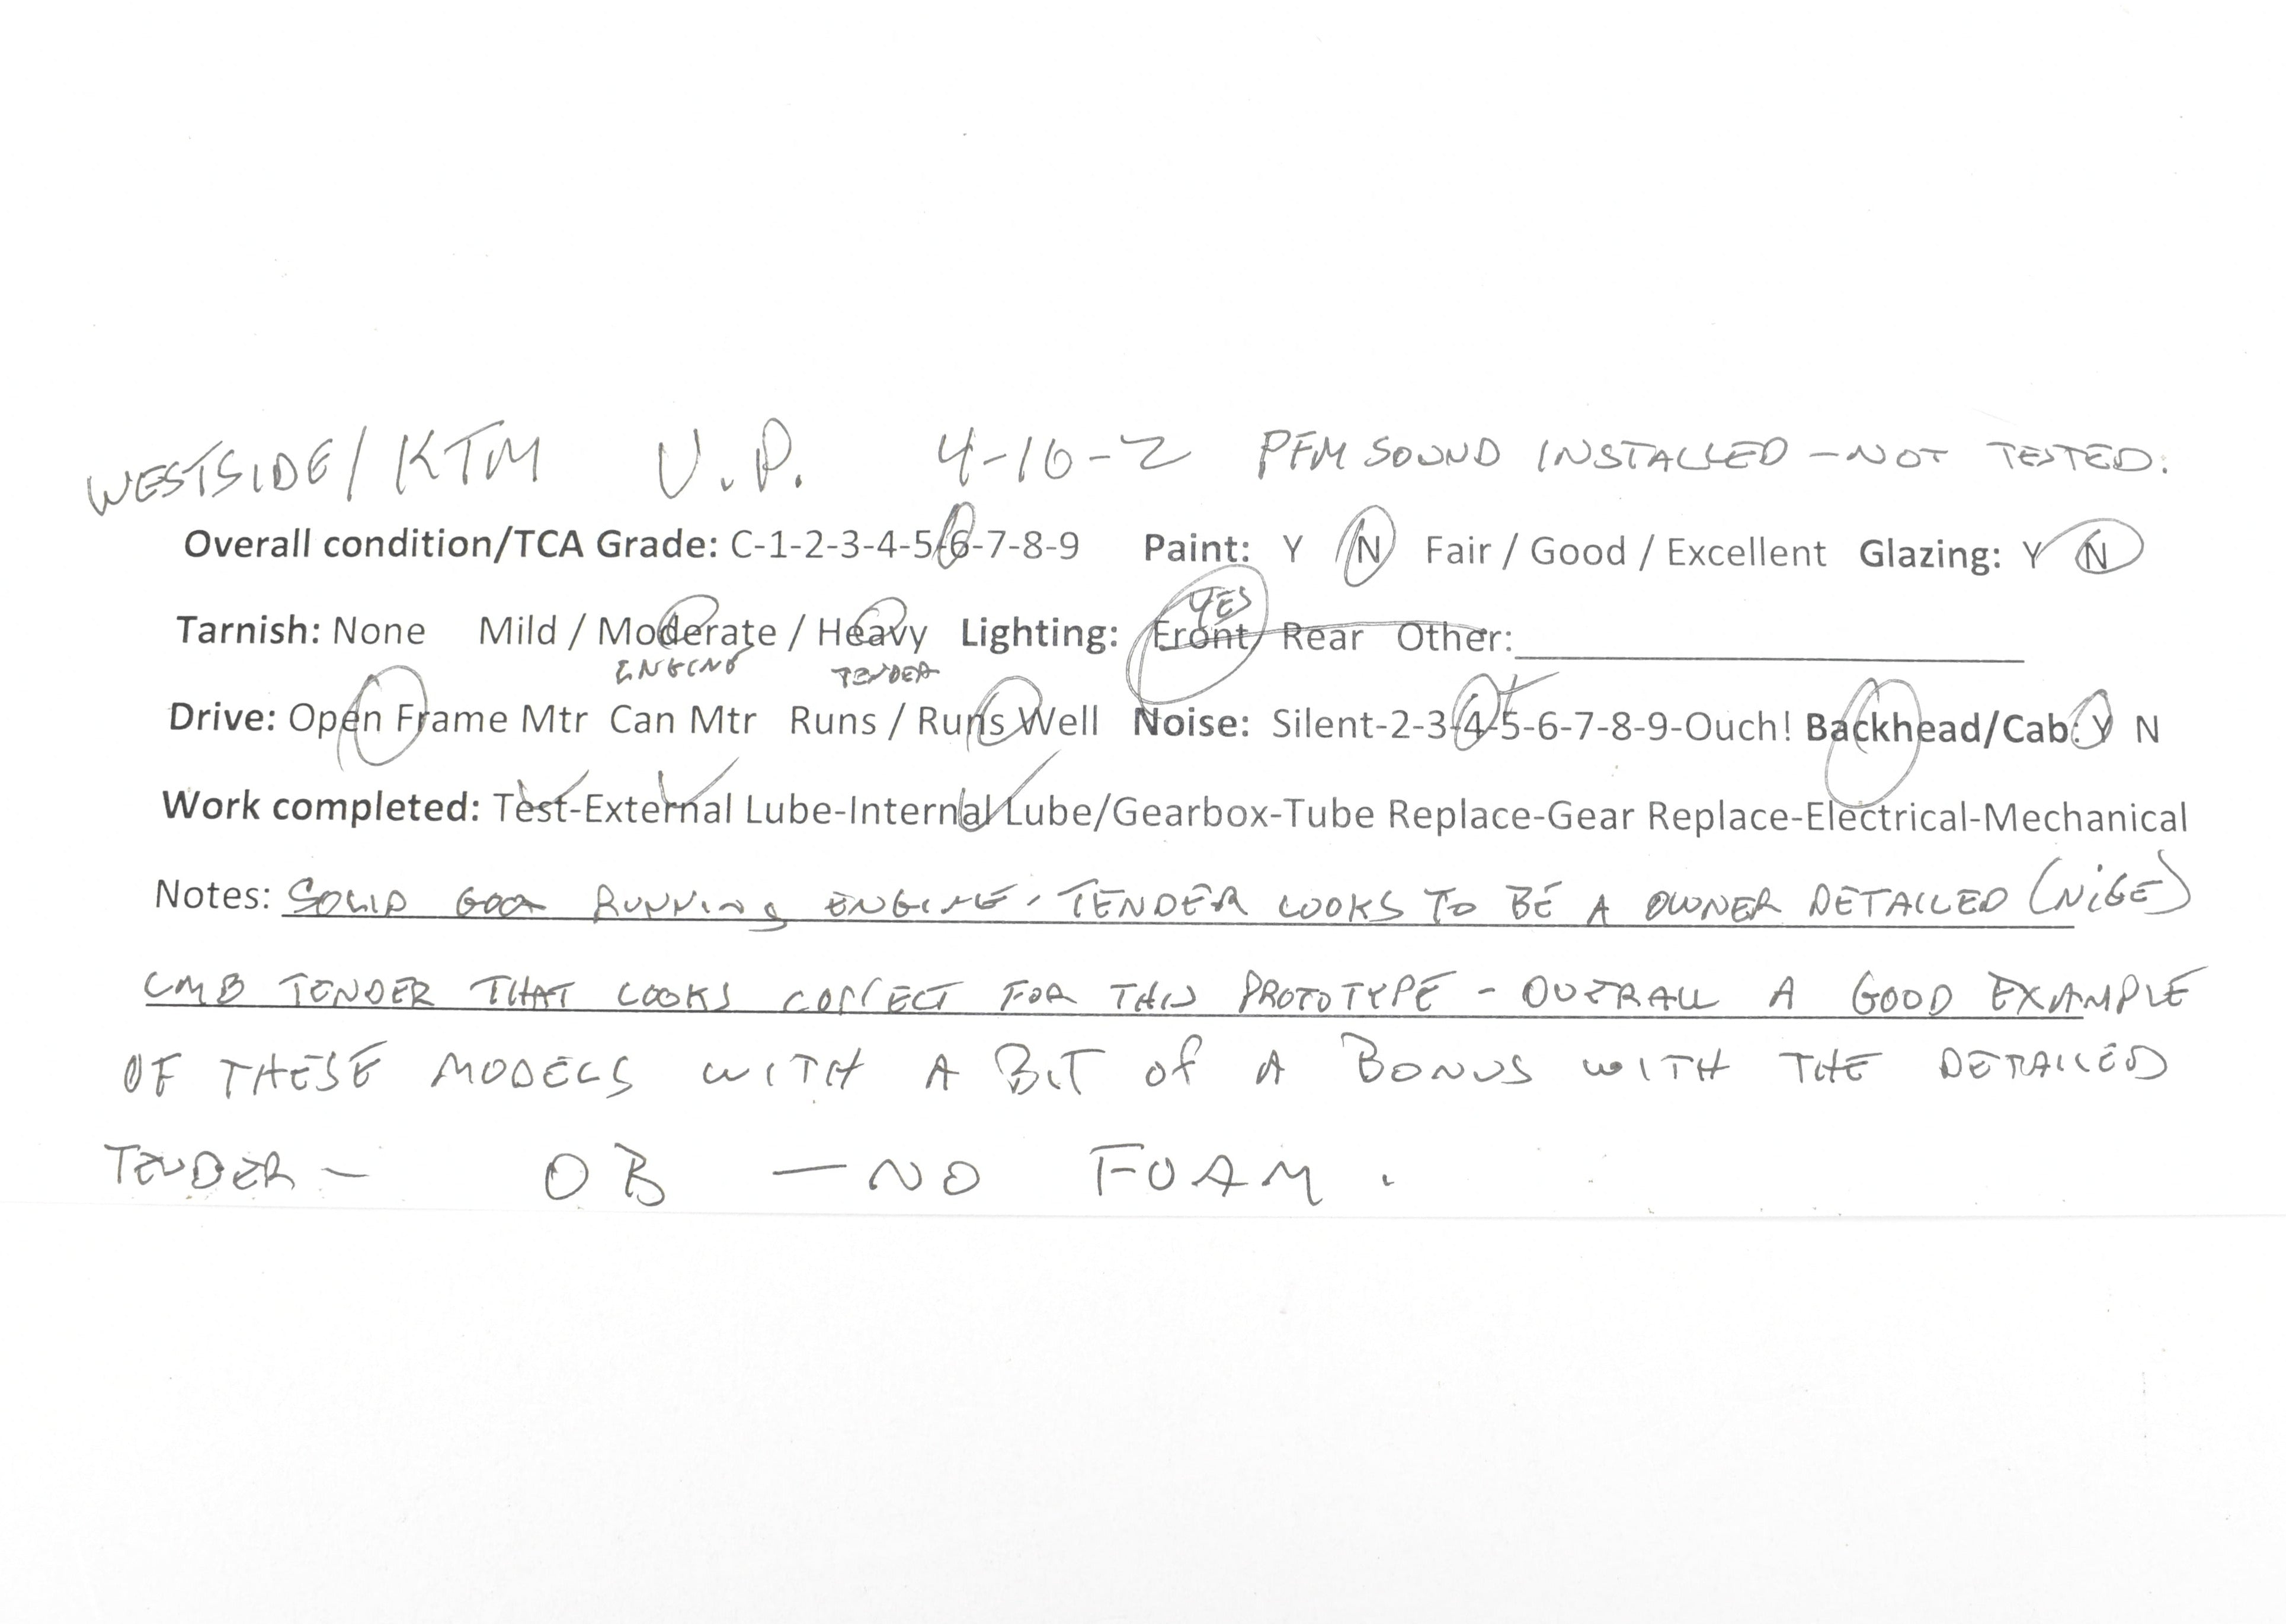 WESTSIDE/KTM U.P. 4-10-2 PFM SOUND INSTALLED - NOT TESTED.
Overall condition/TCA Grade: C-1-2-3-4-5-6-7-8-9 Paint: Y N Fair / Good / Excellent Glazing: Y N
YES
Tarnish: None Mild / Moderate / Heavy Lighting: Front/ Rear Other:
ENGINE TENDER
Drive: Open Frame Mtr Can Mtr Runs / Runs Well Noise: Silent-2-3-4-5-6-7-8-9-Ouch! Backhead/Cab: Y N
Work completed: Test-External Lube-Internal Lube/Gearbox-Tube Replace-Gear Replace-Electrical-Mechanical
Notes: SOLID GOOD RUNNING ENGINE. TENDER LOOKS TO BE A OWNER DETAILED (NICE)
CMB TENDER THAT LOOKS CORRECT FOR THIS PROTOTYPE - OVERALL A GOOD EXAMPLE
OF THESE MODELS WITH A BIT of A BONUS WITH THE DETAILED
TENDER - OB - NO FOAM.